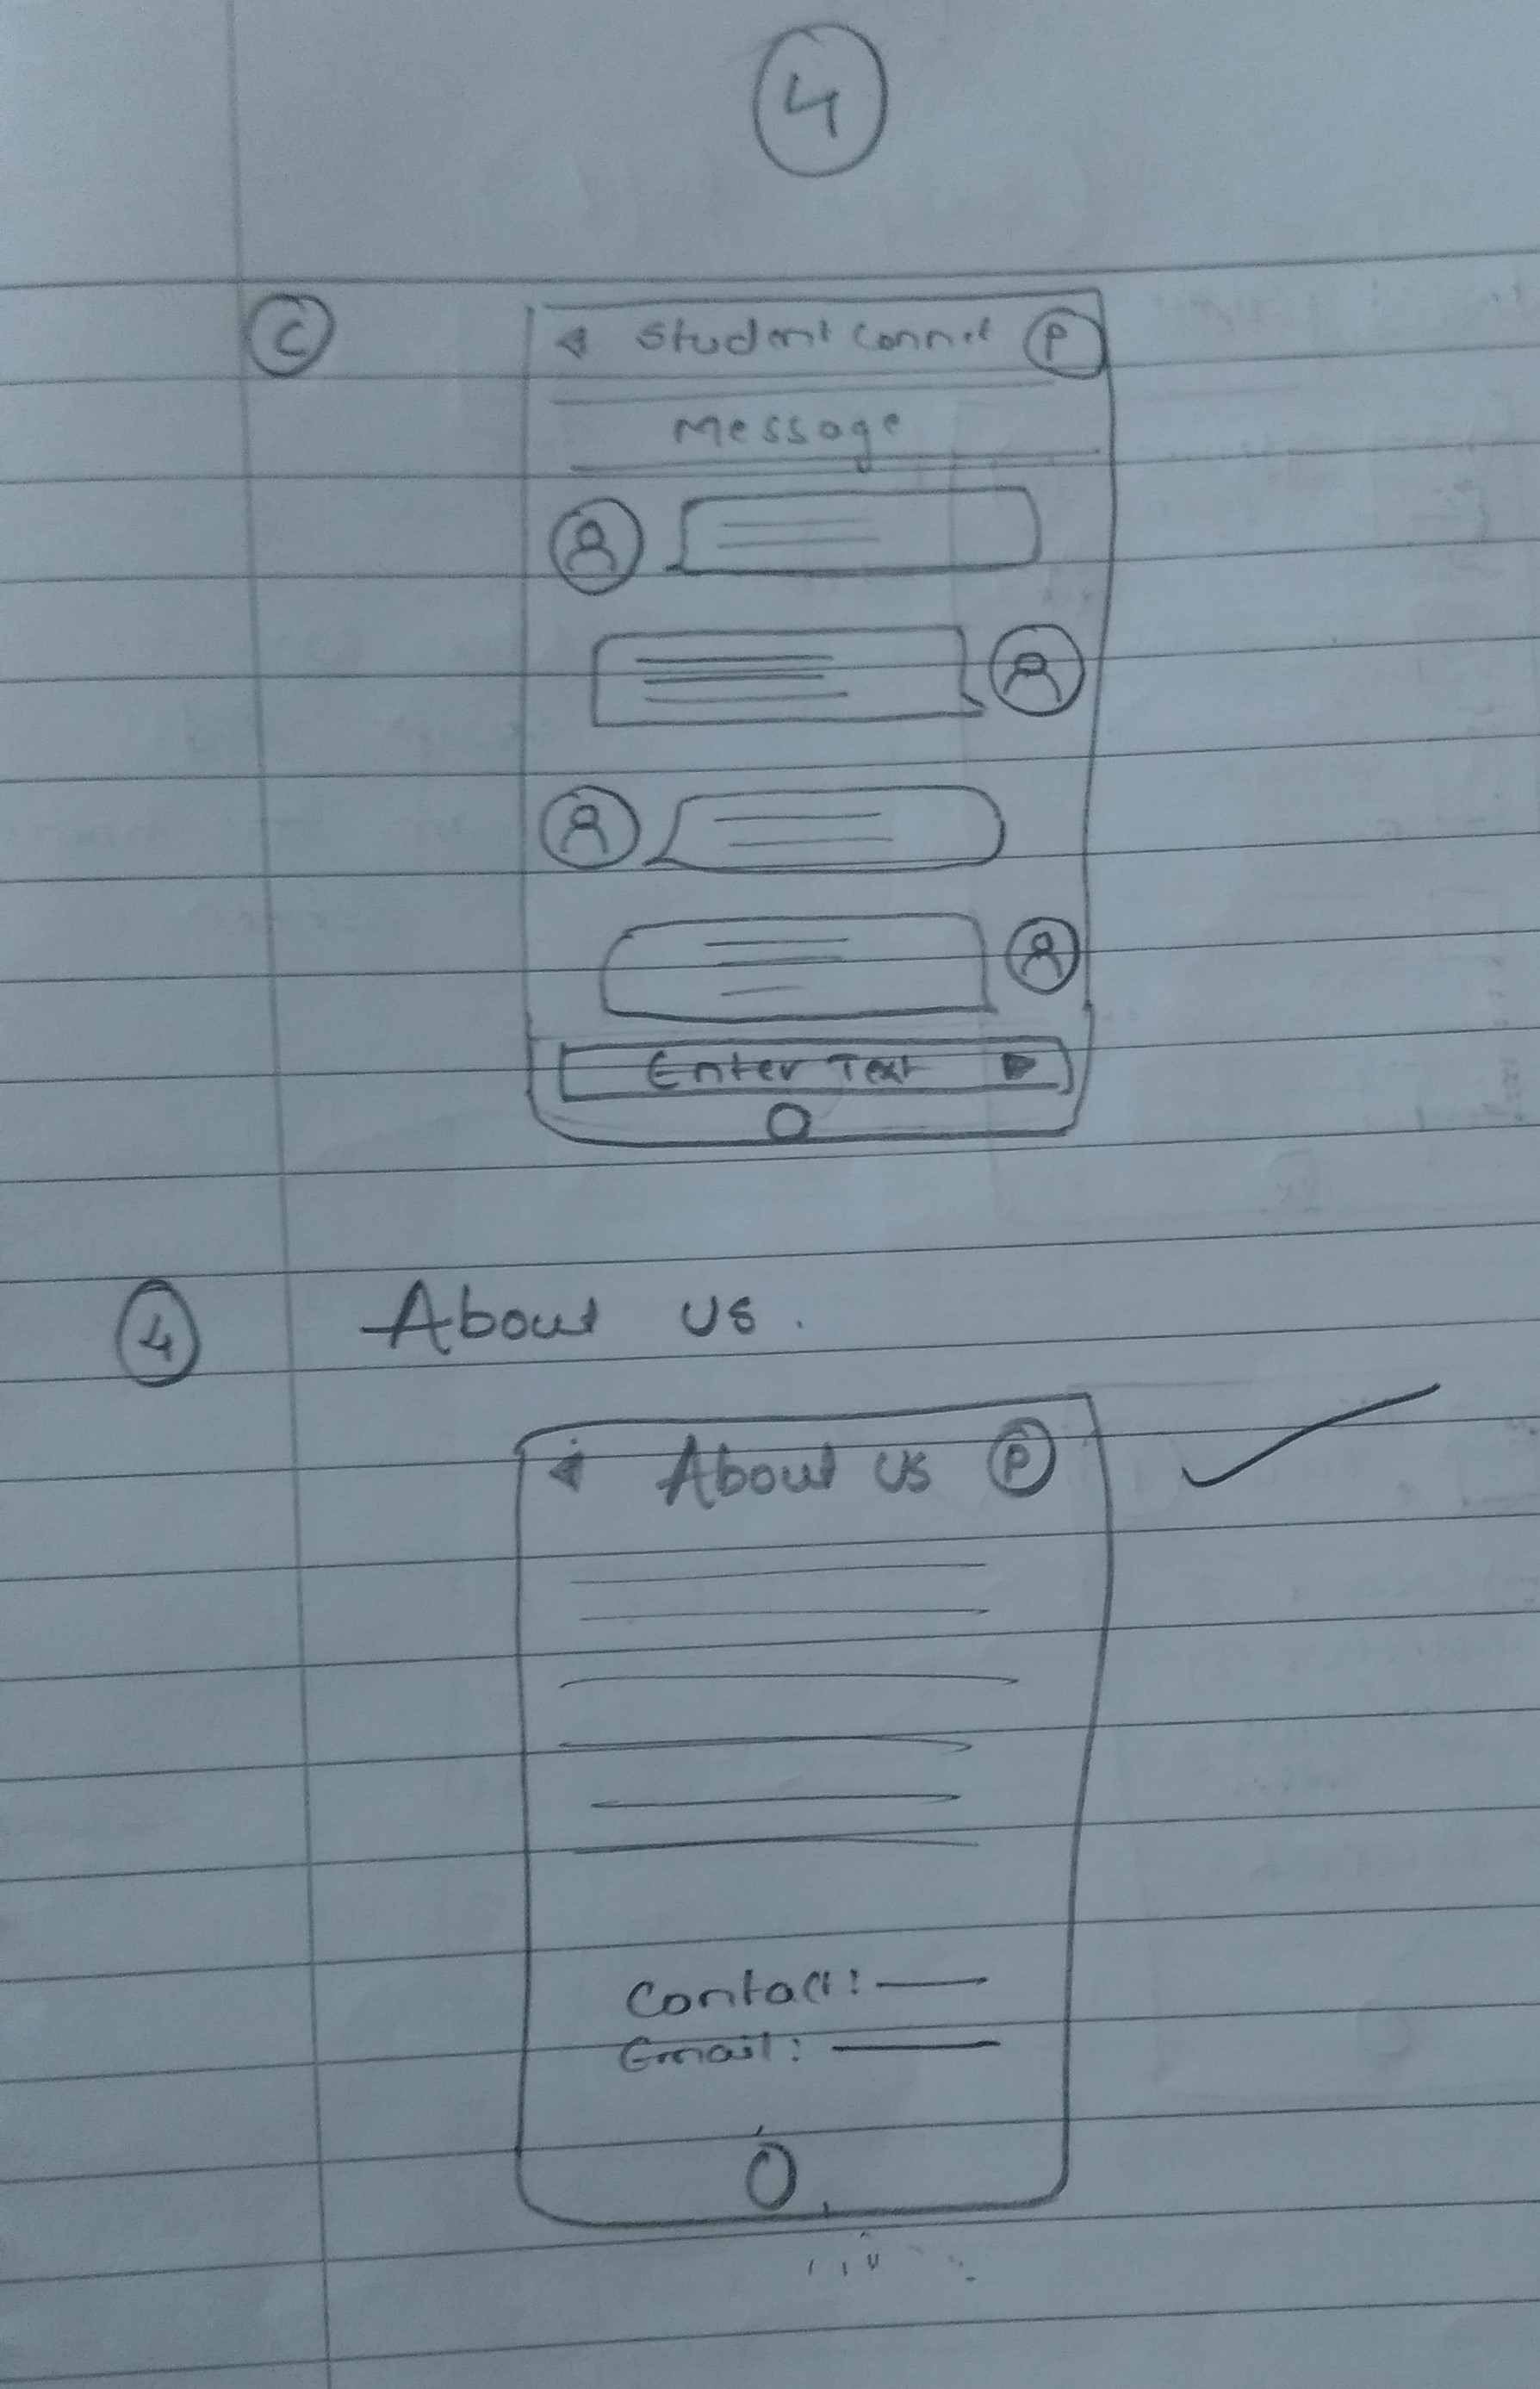 4
C
Student Connet P
Message
Enter Text
4 About us.
About us P
Contact:
Email: